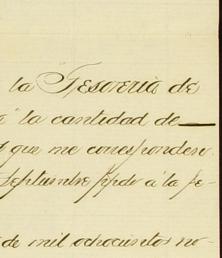 la Tesoreria de
la cantidad de
que me corresponden
Septiembre ppdo á la fe-
de mil ochocientos no-